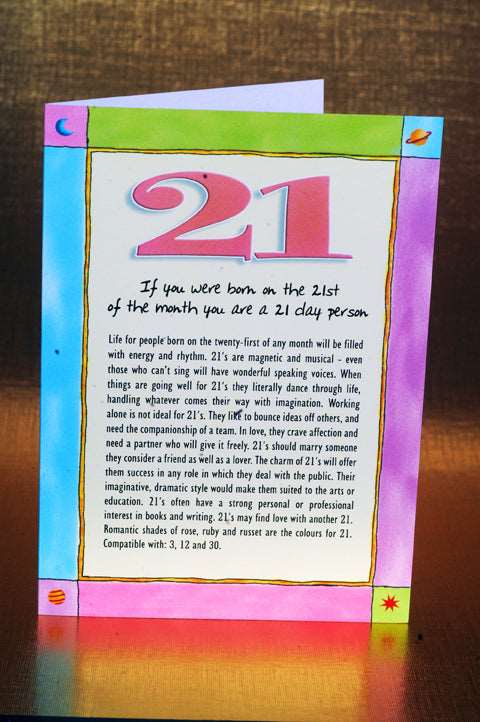 21
If you were born on the 21st
of the month you are a 21 day person
Life for people born on the twenty-first of any month will be filled
with energy and rhythm. 21's are magnetic and musical - even
those who can't sing will have wonderful speaking voices. When
things are going well for 21's they literally dance through life,
handling whatever comes their way with imagination. Working
alone is not ideal for 21's. They like to bounce ideas off others, and
need the companionship of a team. In love, they crave affection and
need a partner who will give it freely. 21's should marry someone
they consider a friend as well as a lover. The charm of 21's will offer
them success in any role in which they deal with the public. Their
imaginative, dramatic style would make them suited to the arts or
education. 21's often have a strong personal or professional
interest in books and writing. 21's may find love with another 21.
Romantic shades of rose, ruby and russet are the colours for 21.
Compatible with: 3, 12 and 30.